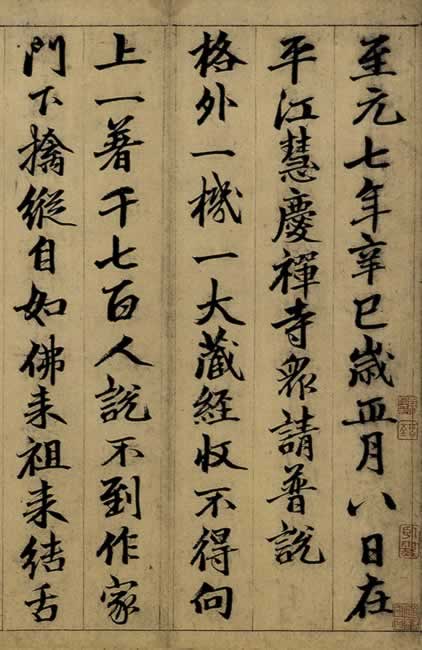 至元七年辛巳歲正月八日在
平江慧慶禪寺衆請普說
格外一機一大藏經收不得向
上一著千七百人說不到作家
門下擒縱自如佛來祖來結舌